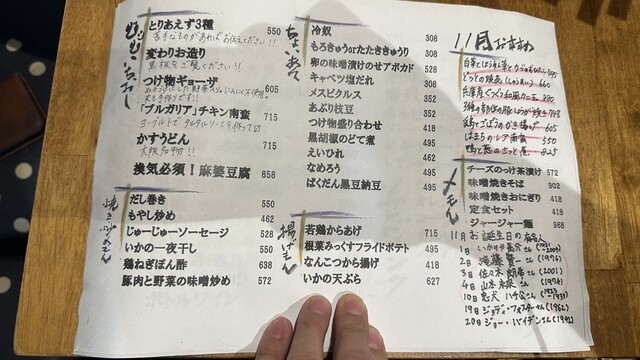 とりあえず3種 550
苦手なものがあればお伝えください!!
変わりお造り
黒板をご覧ください!!
つけ物ギョーザ 605
「ブルガリア」チキン南蛮 715
ヨーグルトでタルタルソースを作って
かすうどん 715
大阪名物!!
換気必須!麻婆豆腐 858
焼き炒めもん
だし巻き 550
もやし炒め 462
じゅーじゅーソーセージ 528
いかの一夜干し 550
鶏ねぎぽん酢 638
豚肉と野菜の味噌炒め 572
ちょいあて
冷奴 308
もろきゅうorたたききゅうり 308
卵の味噌漬けのせアボカド 528
キャベツ塩だれ 308
メスピクルス 352
あぶり枝豆 352
つけ物盛り合わせ 418
黒胡椒のどて煮 495
えいひれ 462
なめろう 495
ばくだん黒豆納豆 495
揚げもん
若鶏からあげ 715
根菜みっくすフライドポテト 495
なんこつから揚げ 418
いかの天ぷら 627
11月おすすめ
〆もん
チーズのっけ茶漬け 572
味噌焼きそば 902
味噌焼きおにぎり 418
定食セット 418
ジャージャー麺 968
11月お誕生日の有名人
2日 滝藤賢一さん (1976)
3日 佐々木朗希さん (2001)
4日 山本未來さん (1974)
10日 忠犬ハチ公さん
19日 ジョディ・フォスターさん (1962)
20日 ジョー・バイデンさん (1942)